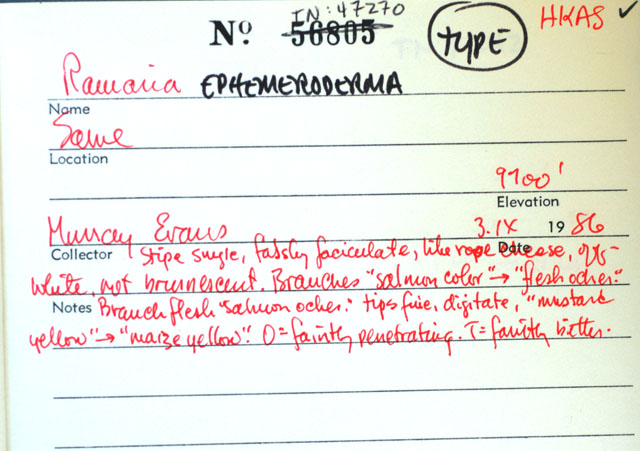 IN: 47270
Nº 56805 TYPE HKAS ✓
Ramaria EPHEMERODERMA
Name
Same
Location
9700'
Elevation
Murray Evans 3.IX 1986
Collector Date
Stipe single, falsely fasciculate, like rope cheese, off-
white, not brunnescent. Branches "salmon color" → "flesh ocher."
Notes Branch flesh "salmon ocher." tips fine, digitate, "mustard
yellow" → "maize yellow". O = faintly penetrating. T = faintly bitter.